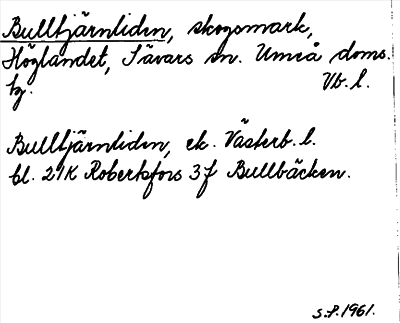 Bulltjärnliden, skogsmark,
Höglandet, Sävars sn. Umeå doms.
hg. Vb. l.
Bulltjärnliden, ek. Västerb. l.
bl. 21K Robertsfors 3f Bullbäcken.
S.P. 1961.